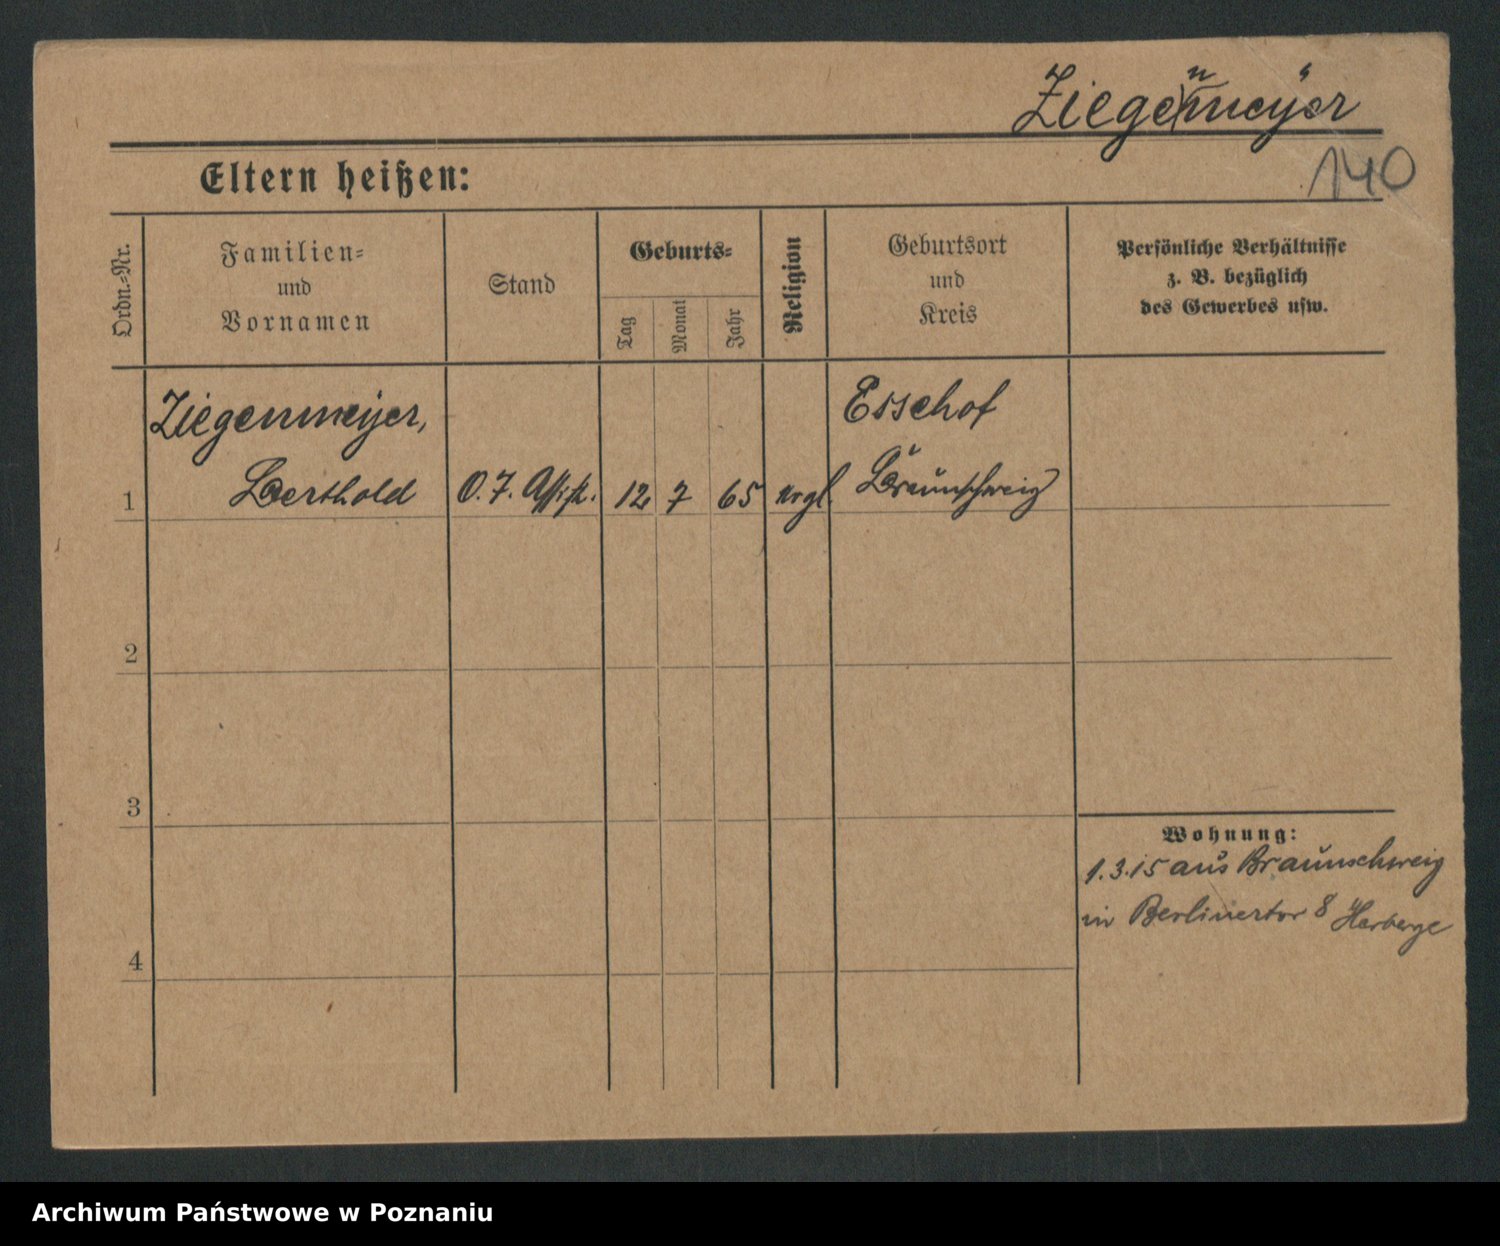 Ziegenmeyer
140
Eltern heißen:
Ordn.-Nr.
Familien-
und
Vornamen
Stand
Geburts-
Tag
Monat
Jahr
Religion
Geburtsort
und
Kreis
Persönliche Verhältnisse
z. B. bezüglich
des Gewerbes usw.
Ziegenmeyer,
Esschof
1 Berthold 12 7 65 Braunschweig
2
3
Wohnung:
1.3.15 aus Braunschweig
in Berlinertor 8 Herberge
4
Archiwum Państwowe w Poznaniu